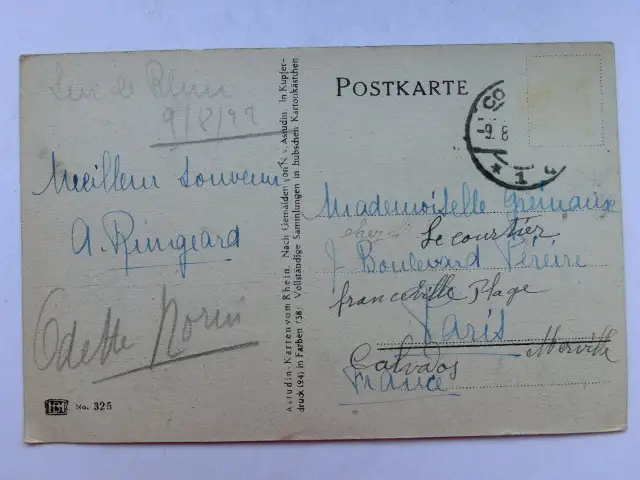 9/8/
Meilleur Souvenir
A. Ringeard
Odette
HM
No. 325
Astudin-Karten vom Rhein. Nach Gemälden von N. v. Astudin. In Kupfer-
druck (24) in Farben (38) Vollständige Sammlungen in hübschen Kartonkästchen
POSTKARTE
CO
-9.8
* 1 4
Mademoiselle
chez
Lecourtier
7 Boulevard Péreire
franceville Plage
Paris
Merville
Calvados
France